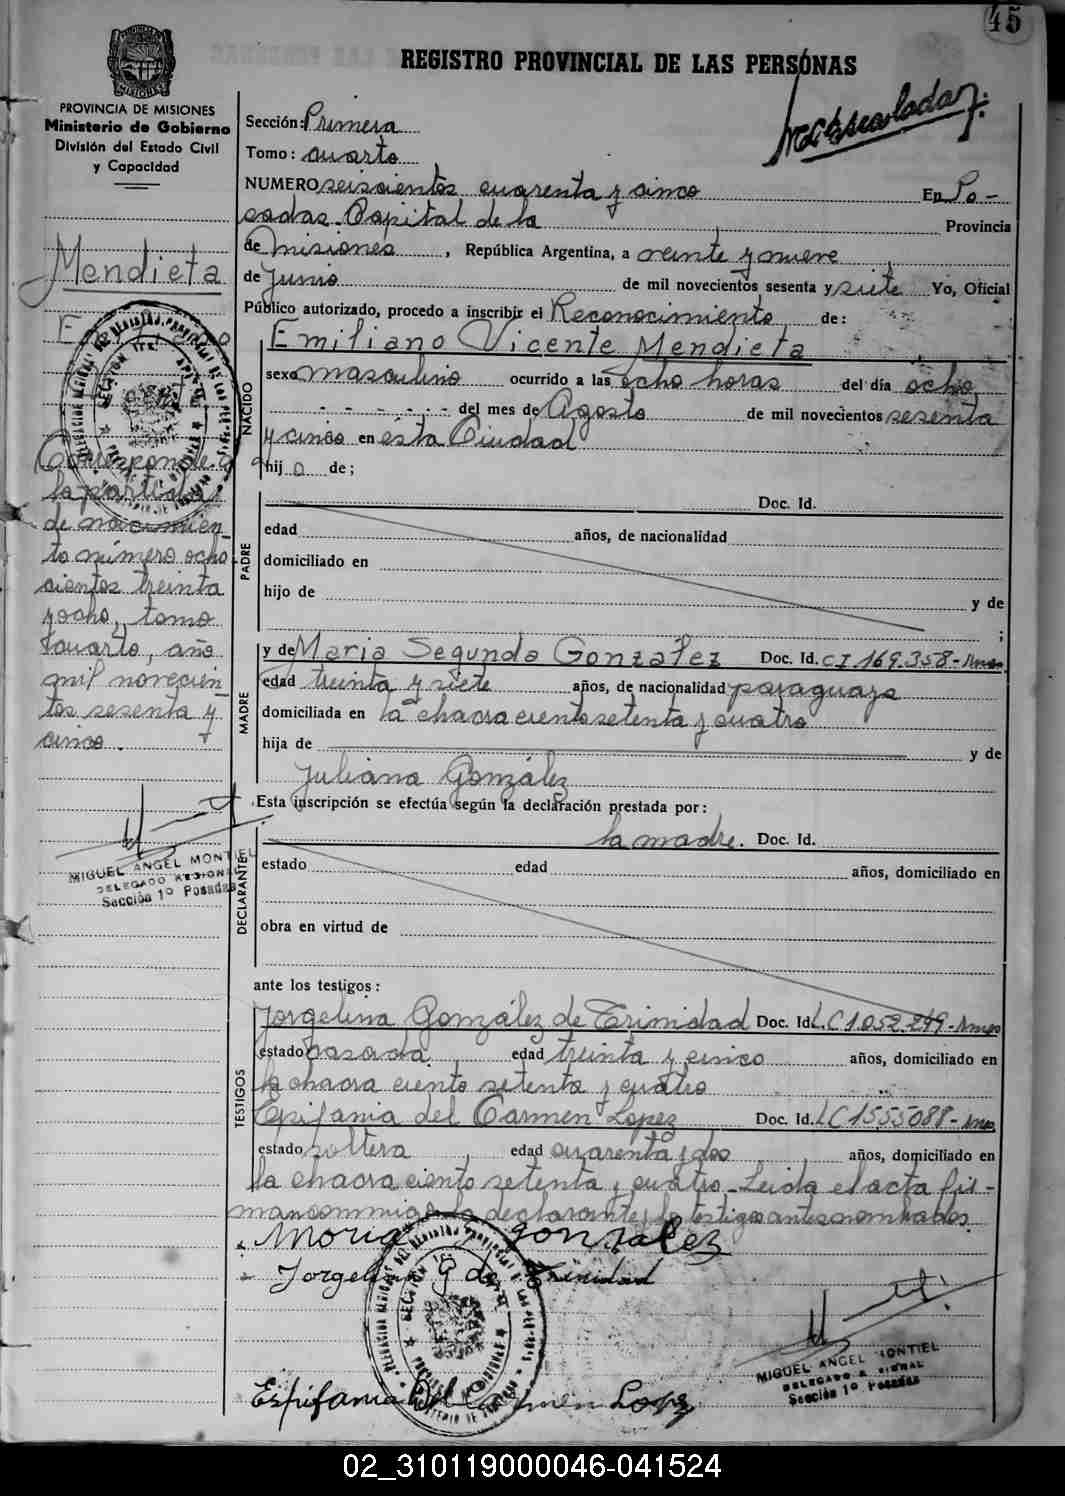 45
REGISTRO PROVINCIAL DE LAS PERSONAS
PROVINCIA DE MISIONES
Ministerio de Gobierno
División del Estado Civil
y Capacidad
Sección: Primera
Tomo: cuarto
NUMERO seiscientos cuarenta y cinco En Po-
sadas Capital de la Provincia
de Misiones, República Argentina, a veinte y nueve
de Junio de mil novecientos sesenta y siete Yo, Oficial
Público autorizado, procedo a inscribir el Reconocimiento de:
Mendieta
NACIDO
Emiliano Vicente Mendieta
sexo masculino ocurrido a las ocho horas del día ocho
- - - - - - del mes de Agosto de mil novecientos sesenta
y cinco en ésta Ciudad
hijo de;
Corresponde a
la partida
de nacimien
to número ocho
cientos treinta
y ocho, tomo
cuarto, año
mil novecien
tos sesenta y
cinco.
MIGUEL ANGEL MONTIEL
DELEGADO REGIONAL
Sección 1º Posadas
PADRE
Doc. Id.
edad años, de nacionalidad
domiciliado en
hijo de y de
;
MADRE
y de Maria Segunda Gonzalez Doc. Id. CI 169.358-
edad treinta y siete años, de nacionalidad paraguaya
domiciliada en la chacra ciento setenta y cuatro
hija de y de
Juliana González
Esta inscripción se efectúa según la declaración prestada por:
DECLARANTE
la madre. Doc. Id.
estado edad años, domiciliado en
obra en virtud de
ante los testigos:
TESTIGOS
Jorgelina González de Trinidad Doc. Id. L.C 1.052.249-
estado casada edad treinta y cinco años, domiciliado en
la chacra ciento setenta y cuatro
Epifania del Carmen Lopez Doc. Id. LC 1555088-
estado soltera, edad cuarenta y dos años, domiciliado en
la chacra ciento setenta y cuatro. Leida el acta fir-
man conmigo la declarante y los testigos antes nombrados.
Maria Gonzalez
Jorgelina G de Trinidad
MIGUEL ANGEL MONTIEL
Sección 1º Posadas
Espifania Del Carmen Lopez
02_310119000046-041524